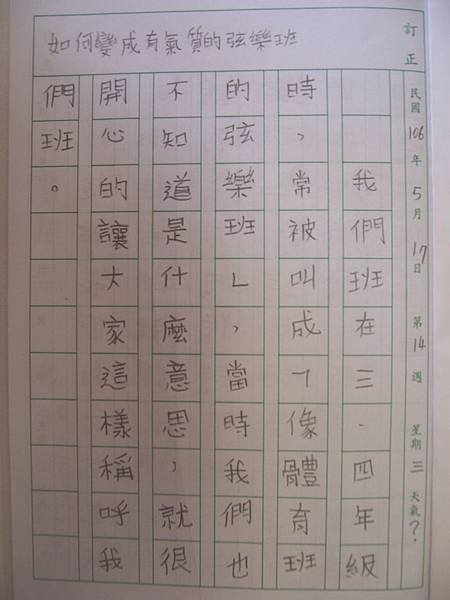 如何變成有氣質的弦樂班
訂正
民國106年5月17日 第14週 星期三 天氣？
我們班在三．四年級
時，常被叫成「像體育班
的弦樂班」，當時我們也
不知道是什麼意思，就很
開心的讓大家這樣稱呼我
們班。